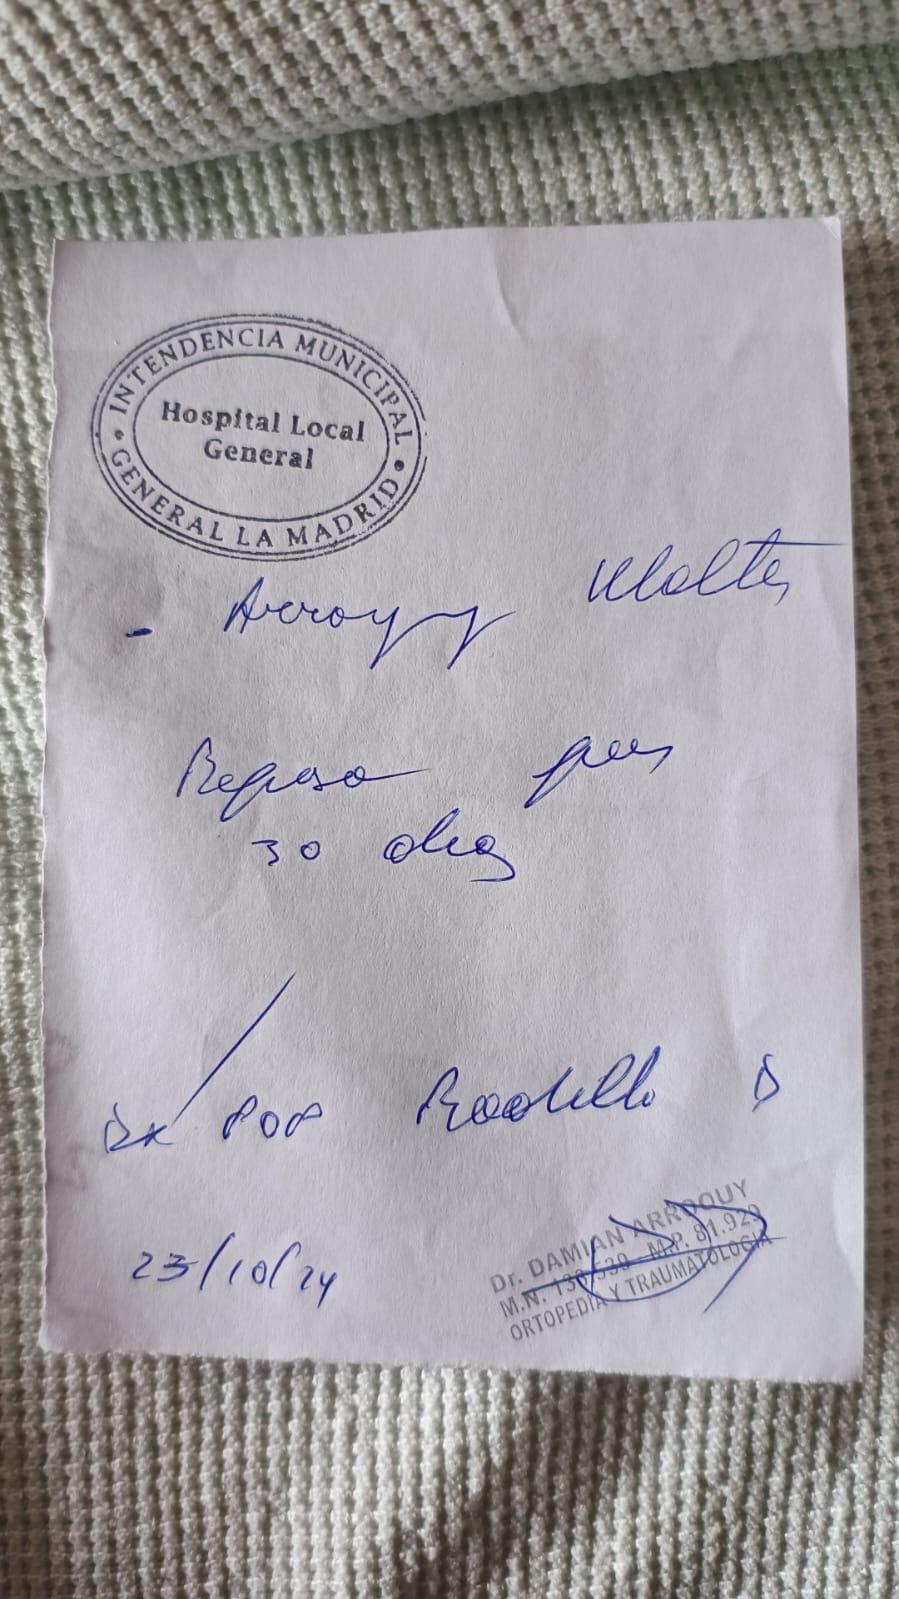 INTENDENCIA MUNICIPAL
Hospital Local
General
GENERAL LA MADRID
Reposo por
30 dias
Dx POP Rodilla D
23/10/24
Dr. DAMIAN ARROQUY
M.P. 81.929
ORTOPEDIA Y TRAUMATOLOGIA